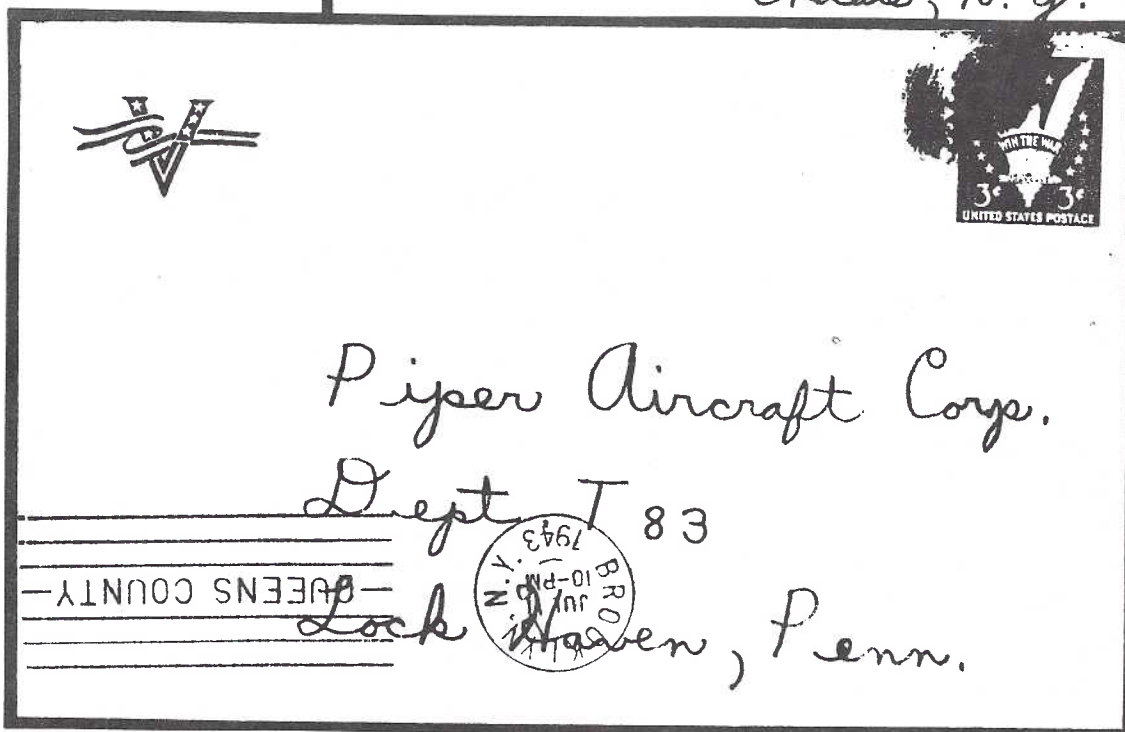 N. Y.
WIN THE WAR
3¢ 3¢
UNITED STATES POSTAGE
Piper Aircraft Corp.
Dept. T 83
Lock Haven, Penn.
QUEENS COUNTY
BROOKLYN N.Y.
JUL
10-PM
1943